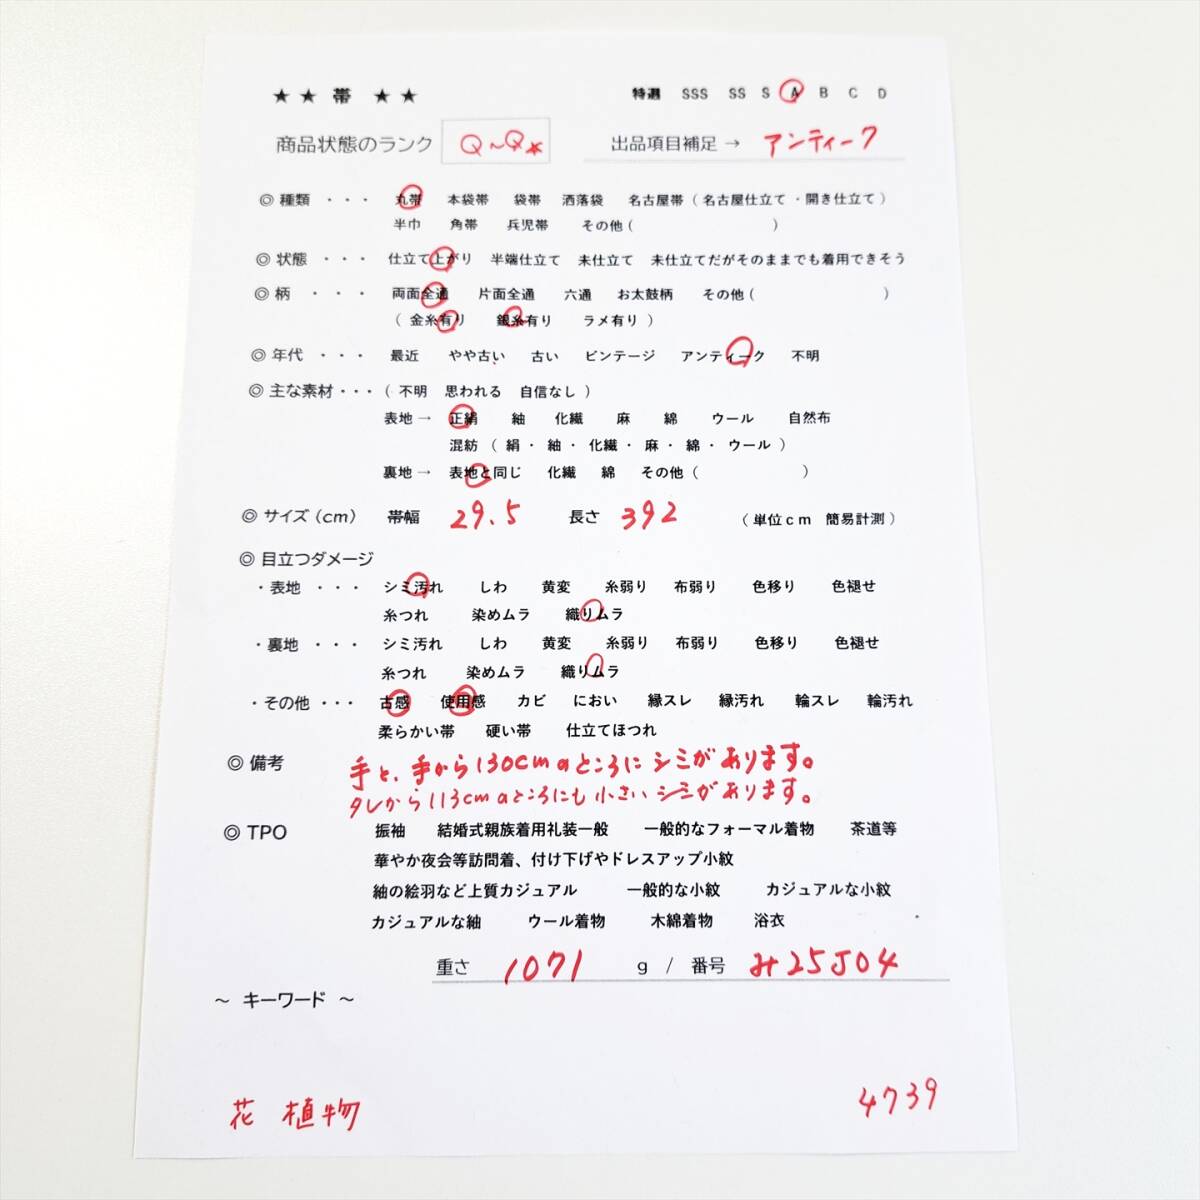 ★ ★ 帯 ★ ★ 特選 SSS SS S A B C D
商品状態のランク Q～Q★ 出品項目補足 → アンティーク
◎ 種類 ・・・ 丸帯 本袋帯 袋帯 洒落袋 名古屋帯 ( 名古屋仕立て ・ 開き仕立て )
半巾 角帯 兵児帯 その他 ( )
◎ 状態 ・・・ 仕立て上がり 半端仕立て 未仕立て 未仕立てだがそのままでも着用できそう
◎ 柄 ・・・ 両面全通 片面全通 六通 お太鼓柄 その他 ( )
( 金糸有り 銀糸有り ラメ有り )
◎ 年代 ・・・ 最近 やや古い 古い ビンテージ アンティーク 不明
◎ 主な素材・・・ ( 不明 思われる 自信なし )
表地 → 正絹 紬 化繊 麻 綿 ウール 自然布
混紡 ( 絹・ 紬・ 化繊・ 麻・ 綿・ ウール )
裏地 → 表地と同じ 化繊 綿 その他 ( )
◎ サイズ (cm) 帯幅 29.5 長さ 392 ( 単位cm 簡易計測 )
◎ 目立つダメージ
・表地 ・・・ シミ汚れ しわ 黄変 糸弱り 布弱り 色移り 色褪せ
糸つれ 染めムラ 織りムラ
・裏地 ・・・ シミ汚れ しわ 黄変 糸弱り 布弱り 色移り 色褪せ
糸つれ 染めムラ 織りムラ
・その他 ・・・ 古感 使用感 カビ におい 縁スレ 縁汚れ 輪スレ 輪汚れ
柔らかい帯 硬い帯 仕立てほつれ
◎ 備考 手と、手から130cmのところにシミがあります。
タレから113cmのところにも小さいシミがあります。
◎ TPO 振袖 結婚式親族着用礼装一般 一般的なフォーマル着物 茶道等
華やか夜会等訪問着、付け下げやドレスアップ小紋
紬の絵羽など上質カジュアル 一般的な小紋 カジュアルな小紋
カジュアルな紬 ウール着物 木綿着物 浴衣
重さ 1071 g / 番号 み25J04
～ キーワード ～
花 植物 4739